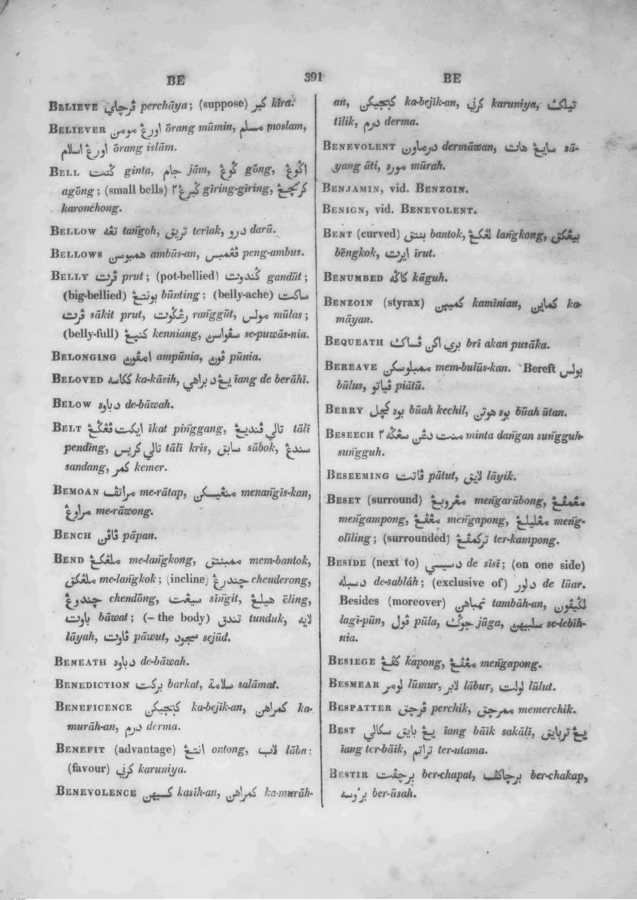 BE 391 BE
BELIEVE ڤرچاي perchāya; (suppose) كير kīra.
BELIEVER اورڠ مومن ōrang mūmin, مسلم moslam,
اورڠ اسلام ōrang islām.
BELL گنت ginta, جام jām, گوڠ gōng, اگوڠ
agōng; (small bells) گيرڠ٢ gīring-gīring, كرنچڠ
karonchong.
BELLOW تڠه tan͡goh, تريق terīak, درو darū.
BELLOWS همبوسن ambūs-an, ڤڠمبس peng-ambus.
BELLY ڤرت prut; (pot-bellied) گندوت gandūt;
(big-bellied) بونتڠ būnting; (belly-ache) ساكت
ڤرت sākit prut, رڠگوت ran͡ggūt, مولس mūlas;
(belly-full) كنيڠ kenniang, سڤواسن se-puwās-nia.
BELONGING امڤون ampūnia, ڤون pūnia.
BELOVED ككاسه ka-kāsih, يڠ دبراهي īang de berāhī.
BELOW دباوه de-bāwah.
BELT ايكت ڤڠگڠ īkat pin͡ggang, تالي ڤنديڠ tālī
pending, تالي كريس tālī krīs, سابق sābok, سندڠ
sandang, كمر kemer.
BEMOAN مراتڤ me-rātap, منڠيسكن menan͡gis-kan,
مراوڠ me-rāwong.
BENCH ڤاڤن pāpan.
BEND ملڠكڠ me-lan͡gkong, ممبنتق mem-bantok,
ملڠكق me-lan͡gkok; (incline) چندرڠ chenderong,
چندوڠ chendōng, سيڠت sīn͡git, هيلڠ ēling,
باوت bāwat; (– the body) تندق tunduk, لايه
lāyah, ڤاوت pāwut, سجود sejūd.
BENEATH دباوه de-bāwah.
BENEDICTION بركت barkat, سلامة salāmat.
BENEFICENCE كبجيكن ka-bejik-an, كمراهن ka-
murāh-an, درم derma.
BENEFIT (advantage) انتڠ ontong, لاب lāba;
(favour) كرني karuniya.
BENEVOLENCE كسيهن kasih-an, كمراهن ka-murāh-
an, كبجيكن ka-bejik-an, كرني karuniya, تيلك
tīlik, درم derma.
BENEVOLENT درماون dermāwan, سايڠ هات sā-
yang āti, موره mūrah.
BENJAMIN, vid. BENZOIN.
BENIGN, vid. BENEVOLENT.
BENT (curved) بنتق bantok, لڠكڠ lan͡gkong, بيڠكق
bēngkok, ايرت īrut.
BENUMBED كاڬه kāguh.
BENZOIN (styrax) كمنين kaminian, كماين ka-
māyan.
BEQUEATH بري اكن ڤساك brī akan pusāka.
BEREAVE ممبولسكن mem-bulūs-kan. Bereft بولس
būlus, ڤياتو piātū.
BERRY بوه كچل būah kechil, بوه هوتن būah ūtan.
BESEECH منت دڠن سڠگه٢ minta dan͡gan sun͡gguh-
sun͡gguh.
BESEEMING ڤاتت pātut, لايق lāyik.
BESET (surround) مڠروبڠ men͡garūbong, مڠمڤڠ
men͡gampong, مڠڤڠ men͡gapong, مڠليلڠ meng-
oliling; (surrounded) تركمڤڠ ter-kampong.
BESIDE (next to) دسيسي de sīsī; (on one side)
دسبله de-sablāh; (exclusive of) دلور de lūar.
Besides (moreover) تمباهن tambāh-an, لاڬيڤون
lagi-pūn, ڤول pūla, جوڬ jūga, سلبيهن se-lebih-
nia.
BESIEGE كڤڠ kāpong, مڠڤڠ men͡gapong.
BESMEAR لومر lūmur, لابر lābur, لولت lūlut.
BESPATTER ڤرچق perchik, ممرچق memerchik.
BEST يڠ بايق سكالي īang bāik sakālī, يڠ تربايق
īang ter-bāik, تراتم ter-utama.
BESTIR برچڤت ber-chapat, برچاكڤ ber-chakap,
بروسه ber-ūsah.